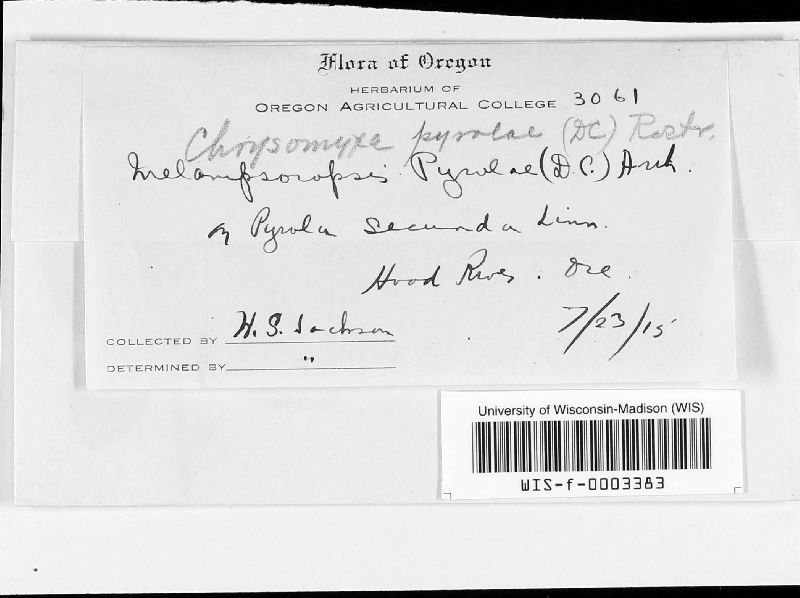 Flora of Oregon
HERBARIUM OF
OREGON AGRICULTURAL COLLEGE 3061
Chrysomyxa pyrolae (DC) Rostr.
Melampsoropsis Pyrolae (D.C.) Arth.
on Pyrola secunda Linn.
Hood River. Ore.
COLLECTED BY H. S. Jackson
7/23/15
DETERMINED BY "
University of Wisconsin-Madison (WIS)
WIS-f-0003383